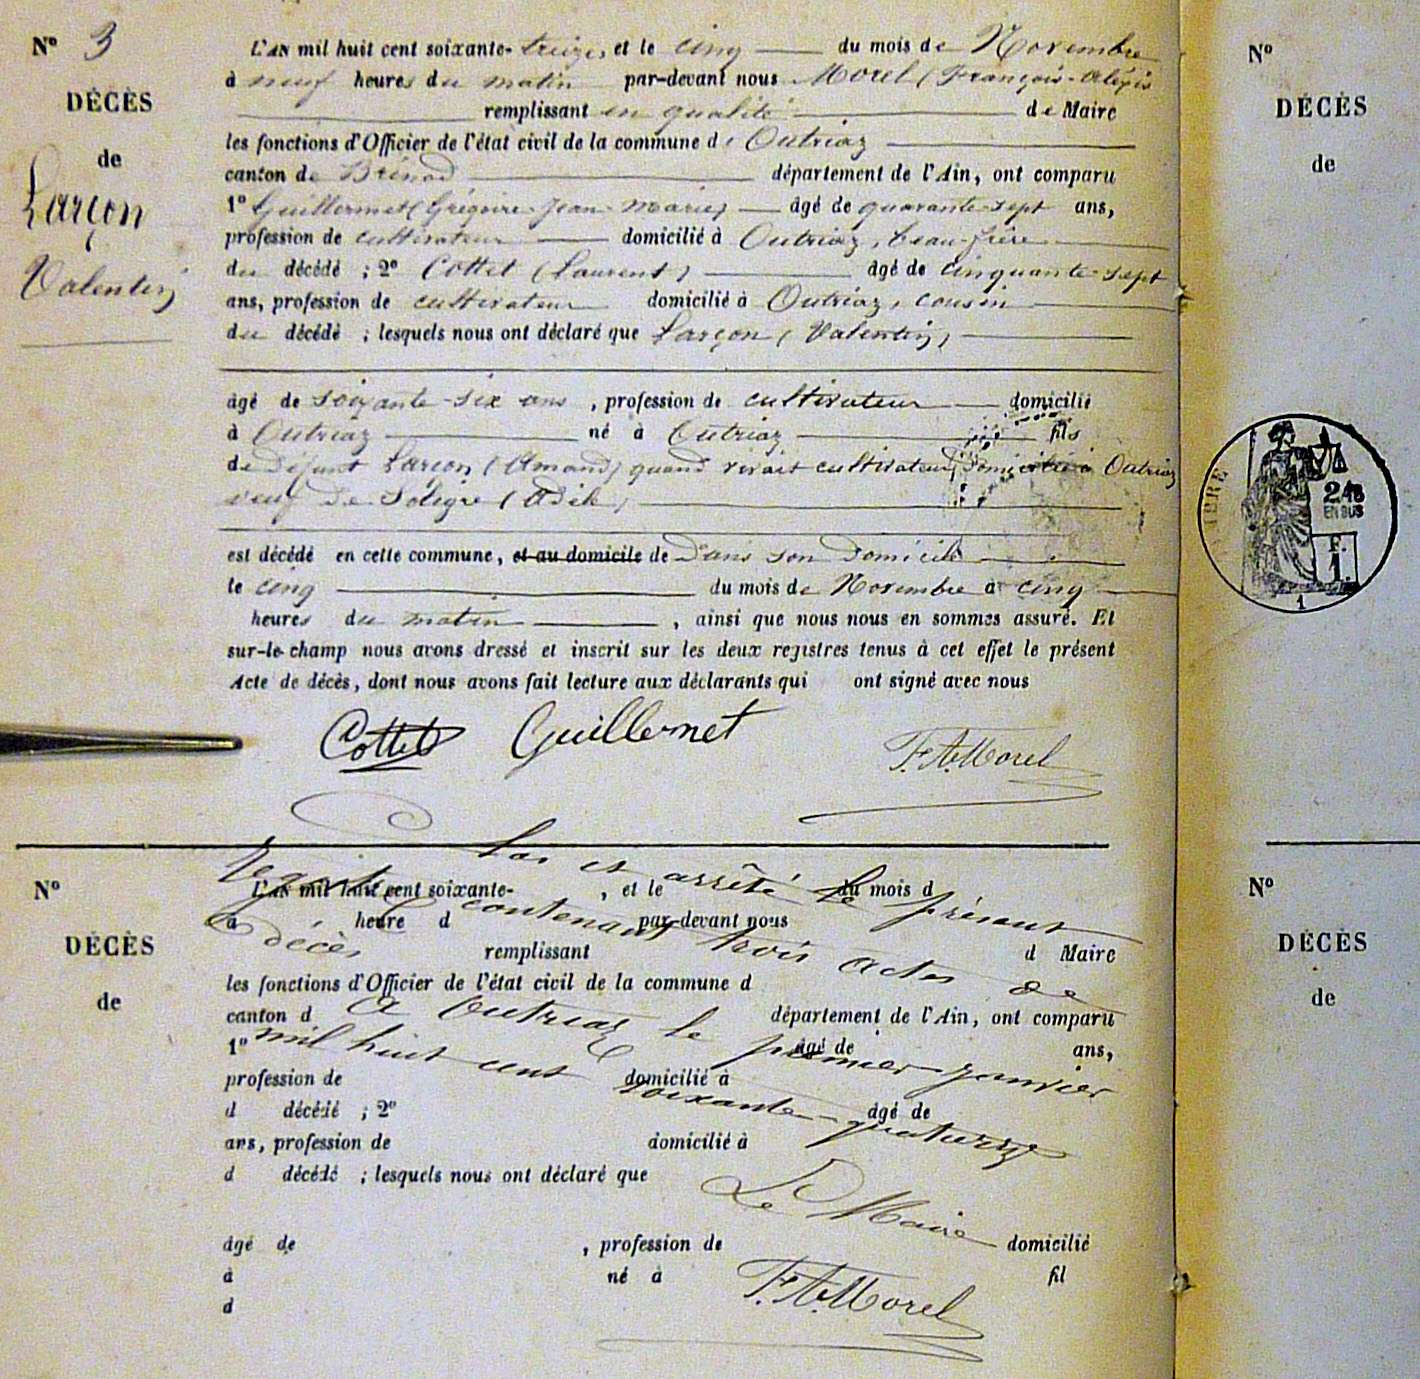 N° 3
DÉCÈS
de
Larçon
Valentin
L'AN mil huit cent soixante-treize, et le cinq du mois de Novembre
à neuf heures du matin par-devant nous Morel (François-Alexis
remplissant en qualité de Maire
les fonctions d'Officier de l'état civil de la commune d' Outriaz
canton de Brénod département de l'Ain, ont comparu
1° Guillermet (Grégoire-Jean-Marie) âgé de quarante-sept ans,
profession de cultivateur domicilié à Outriaz, beau-frère
du décédé ; 2° Cottet (Laurent) âgé de cinquante-sept
ans, profession de cultivateur domicilié à Outriaz, cousin
du décédé ; lesquels nous ont déclaré que Larçon (Valentin)
âgé de soixante-six ans, profession de cultivateur domicilié
à Outriaz né à Outriaz fils
de défunt Larçon (Amand) quand vivait cultivateur domicilié à Outriaz
veuf de (Adèle)
est décédé en cette commune, et au domicile de dans son domicile
le cinq du mois de Novembre à cinq
heures du matin, ainsi que nous nous en sommes assuré. Et
sur-le-champ nous avons dressé et inscrit sur les deux registres tenus à cet effet le présent
Acte de décès, dont nous avons fait lecture aux déclarants qui ont signé avec nous
Cottet Guillermet F. A. Morel
Clos et arrêté le présent
Registre contenant trois actes de
décès
A Outriaz le premier janvier
mil huit cent soixante-quatorze
Le Maire
F. A. Morel
N°
DÉCÈS
de
L'AN mil huit cent soixante- , et le du mois d
à heure d par-devant nous
remplissant d Maire
les fonctions d'Officier de l'état civil de la commune d
canton d département de l'Ain, ont comparu
1° âgé de ans,
profession de domicilié à
d décédé ; 2° âgé de
ans, profession de domicilié à
d décédé ; lesquels nous ont déclaré que
âgé de , profession de domicilié
à né à fil
d
N°
DÉCÈS
de
2/10
EN SUS
F.
1.
1
N°
DÉCÈS
de